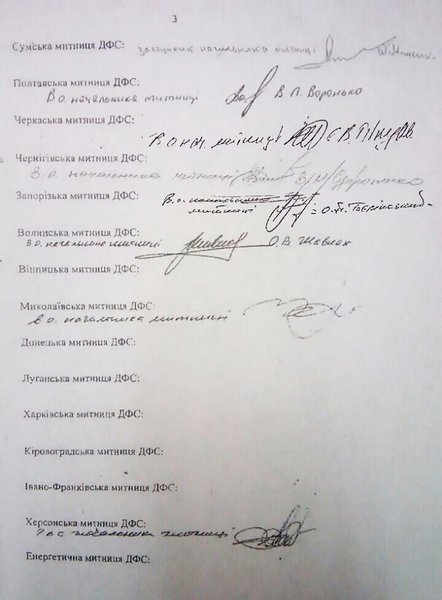 3
Сумська митниця ДФС: заступник начальника митниці
Полтавська митниця ДФС:
В.о. начальника митниці В.П. Воронько
Черкаська митниця ДФС:
В о нач. митниці
Чернігівська митниця ДФС:
В.о. начальника митниці
Запорізька митниця ДФС: В.о.
митниці
Волинська митниця ДФС:
В.о. начальника митниці О.В.
Вінницька митниця ДФС:
Миколаївська митниця ДФС:
в о начальника митниці
Донецька митниця ДФС:
Луганська митниця ДФС:
Харківська митниця ДФС:
Кіровоградська митниця ДФС:
Івано-Франківська митниця ДФС:
Херсонська митниця ДФС:
начальника митниці
Енергетична митниця ДФС: